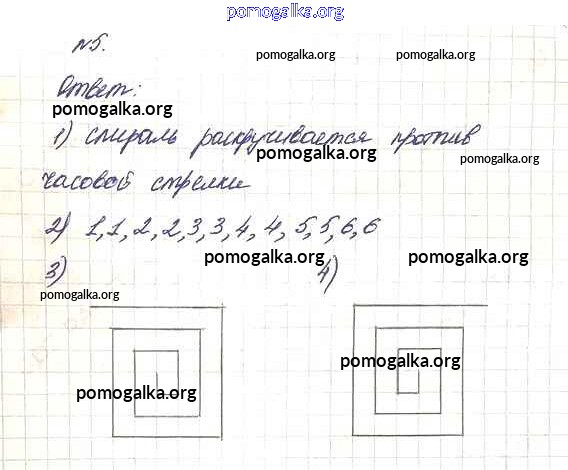 pomogalka.org
№5.
pomogalka.org
pomogalka.org
Ответ:
pomogalka.org
1) спираль раскручивается против
pomogalka.org
pomogalka.org
часовой стрелки
2) 1,1,2,2,3,3,4,4,5,5,6,6
pomogalka.org
pomogalka.org
3)
4)
pomogalka.org
pomogalka.org
pomogalka.org